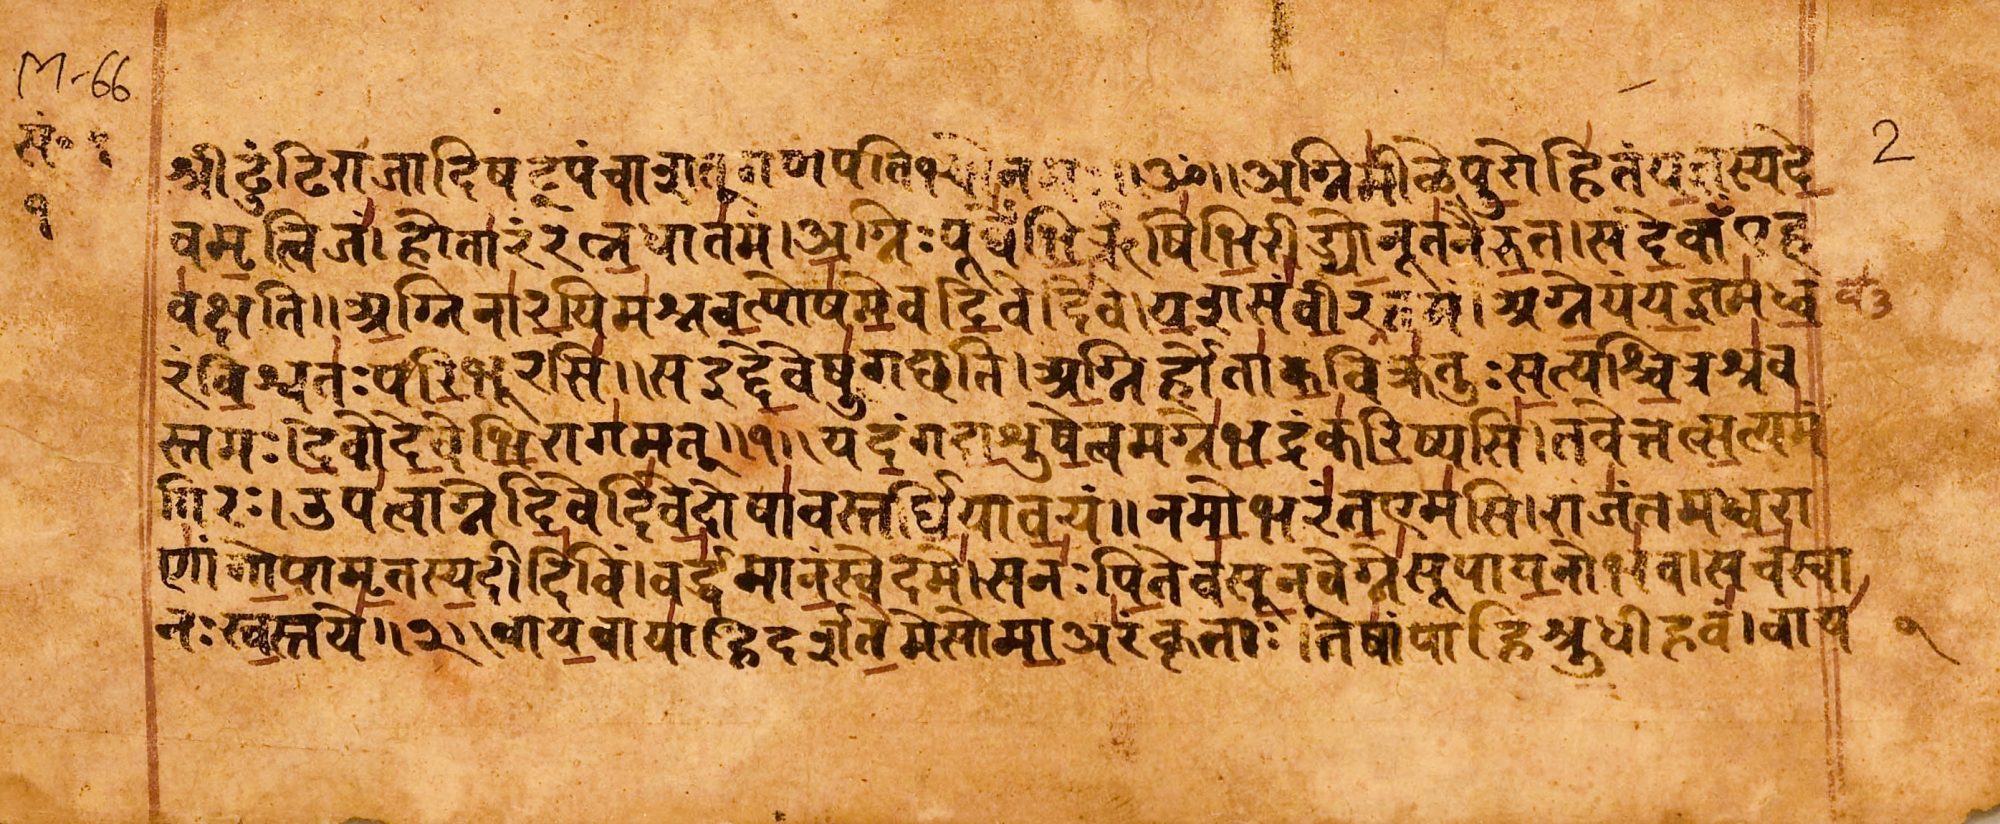 M-66
सं॰ १
१
2
श्रीढुंटिराजादिषट्पंचाशत्गणपतिभ्योनमः॥ॐ॥अग्निमीळेपुरोहितंयज्ञस्यदे
वमृत्विजं।होतारंरत्नधातमं।अग्निःपूर्वेभिर्ऋषिभिरीड्योनूतनैरुत।सदेवाँएह
वक्षति॥अग्निनारयिमश्नवत्पोषमेवदिवेदिवे।यशसंवीरवत्तमं।अग्नेयंयज्ञमध्व
रंविश्वतःपरिभूरसि॥सइद्देवेषुगछति।अग्निर्होताकविक्रतुःसत्यश्चित्रश्रव
स्तमः।देवोदेवेभिरागमत्॥१॥यदंगदाशुषेत्वमग्नेभद्रंकरिष्यसि।तवेत्तत्सत्यमं
गिरः।उपत्वाग्नेदिवेदिवेदोषावस्तर्धियावयं॥नमोभरंतएमसि।राजंतमध्वरा
णांगोपामृतस्यदीदिविं।वर्द्धमानंस्वेदमे।सनःपितेवसूनवेग्नेसूपायनोभव।सचस्वा
नःस्वस्तये॥२॥वायवायाहिदर्शतेमेसोमाअरंकृताः।तेषांपाहिश्रुधीहवं।वाय